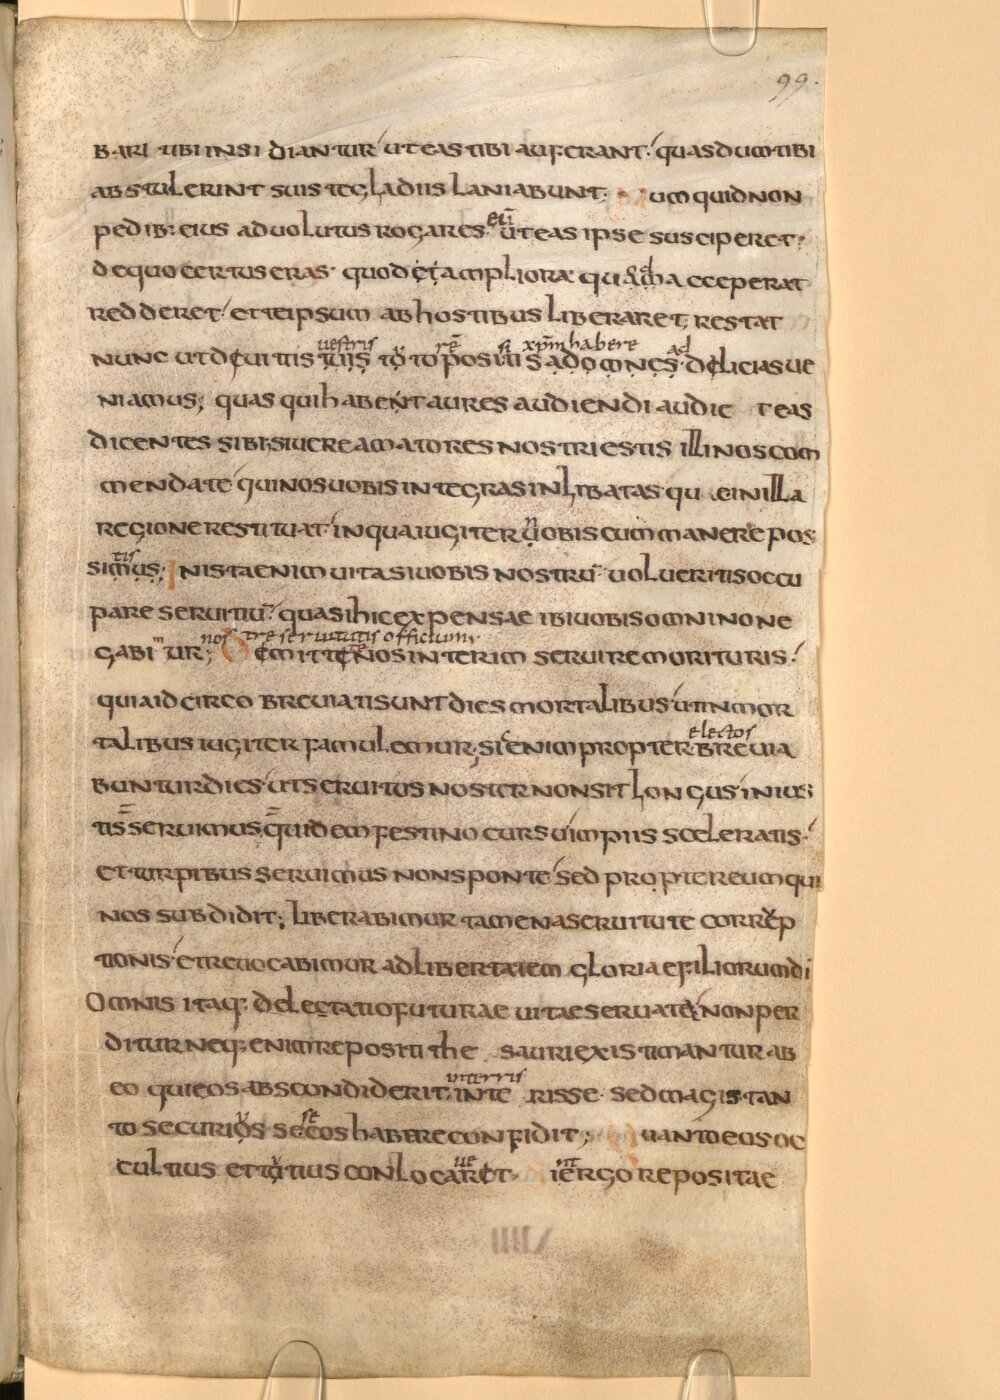 99.
bari ubi insidiantur ut eas tibi auferant. quas dum tibi
abstulerint suis te gladiis laniabunt; umquid non
pedib: eius aduolutus rogares eū ut eas ipse susciperet?
de quo certus eras. quod et ampliora quā acceperat
redderet. et te ipsum ab hostibus liberaret; restat
uestris rē si xp̄m habere ad
nunc ut diuitiis tuis toto positis ad omnes delicias ue
niamus; quas qui habent aures audiendi audie t eas
dicentes sibi; si uere amatores nostri estis illi nos com
mendate qui nos uobis integras inlibatas qu e in illa
regione restituat in qua iugiter uobiscum manere pos
tis
simus; In ista enim uita si uobis nostrū uolueritis occu
pare seruitiū. quasi hic expensae ibi uobis omnino ne
nos tre seruitutis officium
gabi m ur; emitte nos interim seruire morituris.
quia idcirco breuiati sunt dies mortalibus ut inmor
electos
talibus iugiter famulemur; sic enim propter breuia
buntur dies ut seruitus noster non sit longus inius
tis seruimus, quidem festino cursu impiis sceleratis.
et turpibus seruimus non sponte sed propter eum qui
nos subdidit; liberabimur tamen a seruitute corrup
tionis et reuocabimur ad libertatem gloriae filiorum di
Omnis itaq: delectatio futurae uitae seruate non per
ditur neq: enim repositi the sauri existimantur ab
interris
eo qui eos absconderit; inte risse. sed magis tan
to securius se eos habere confidit; uanto eos oc
cultius et tutius conlocaret. iergo repositae